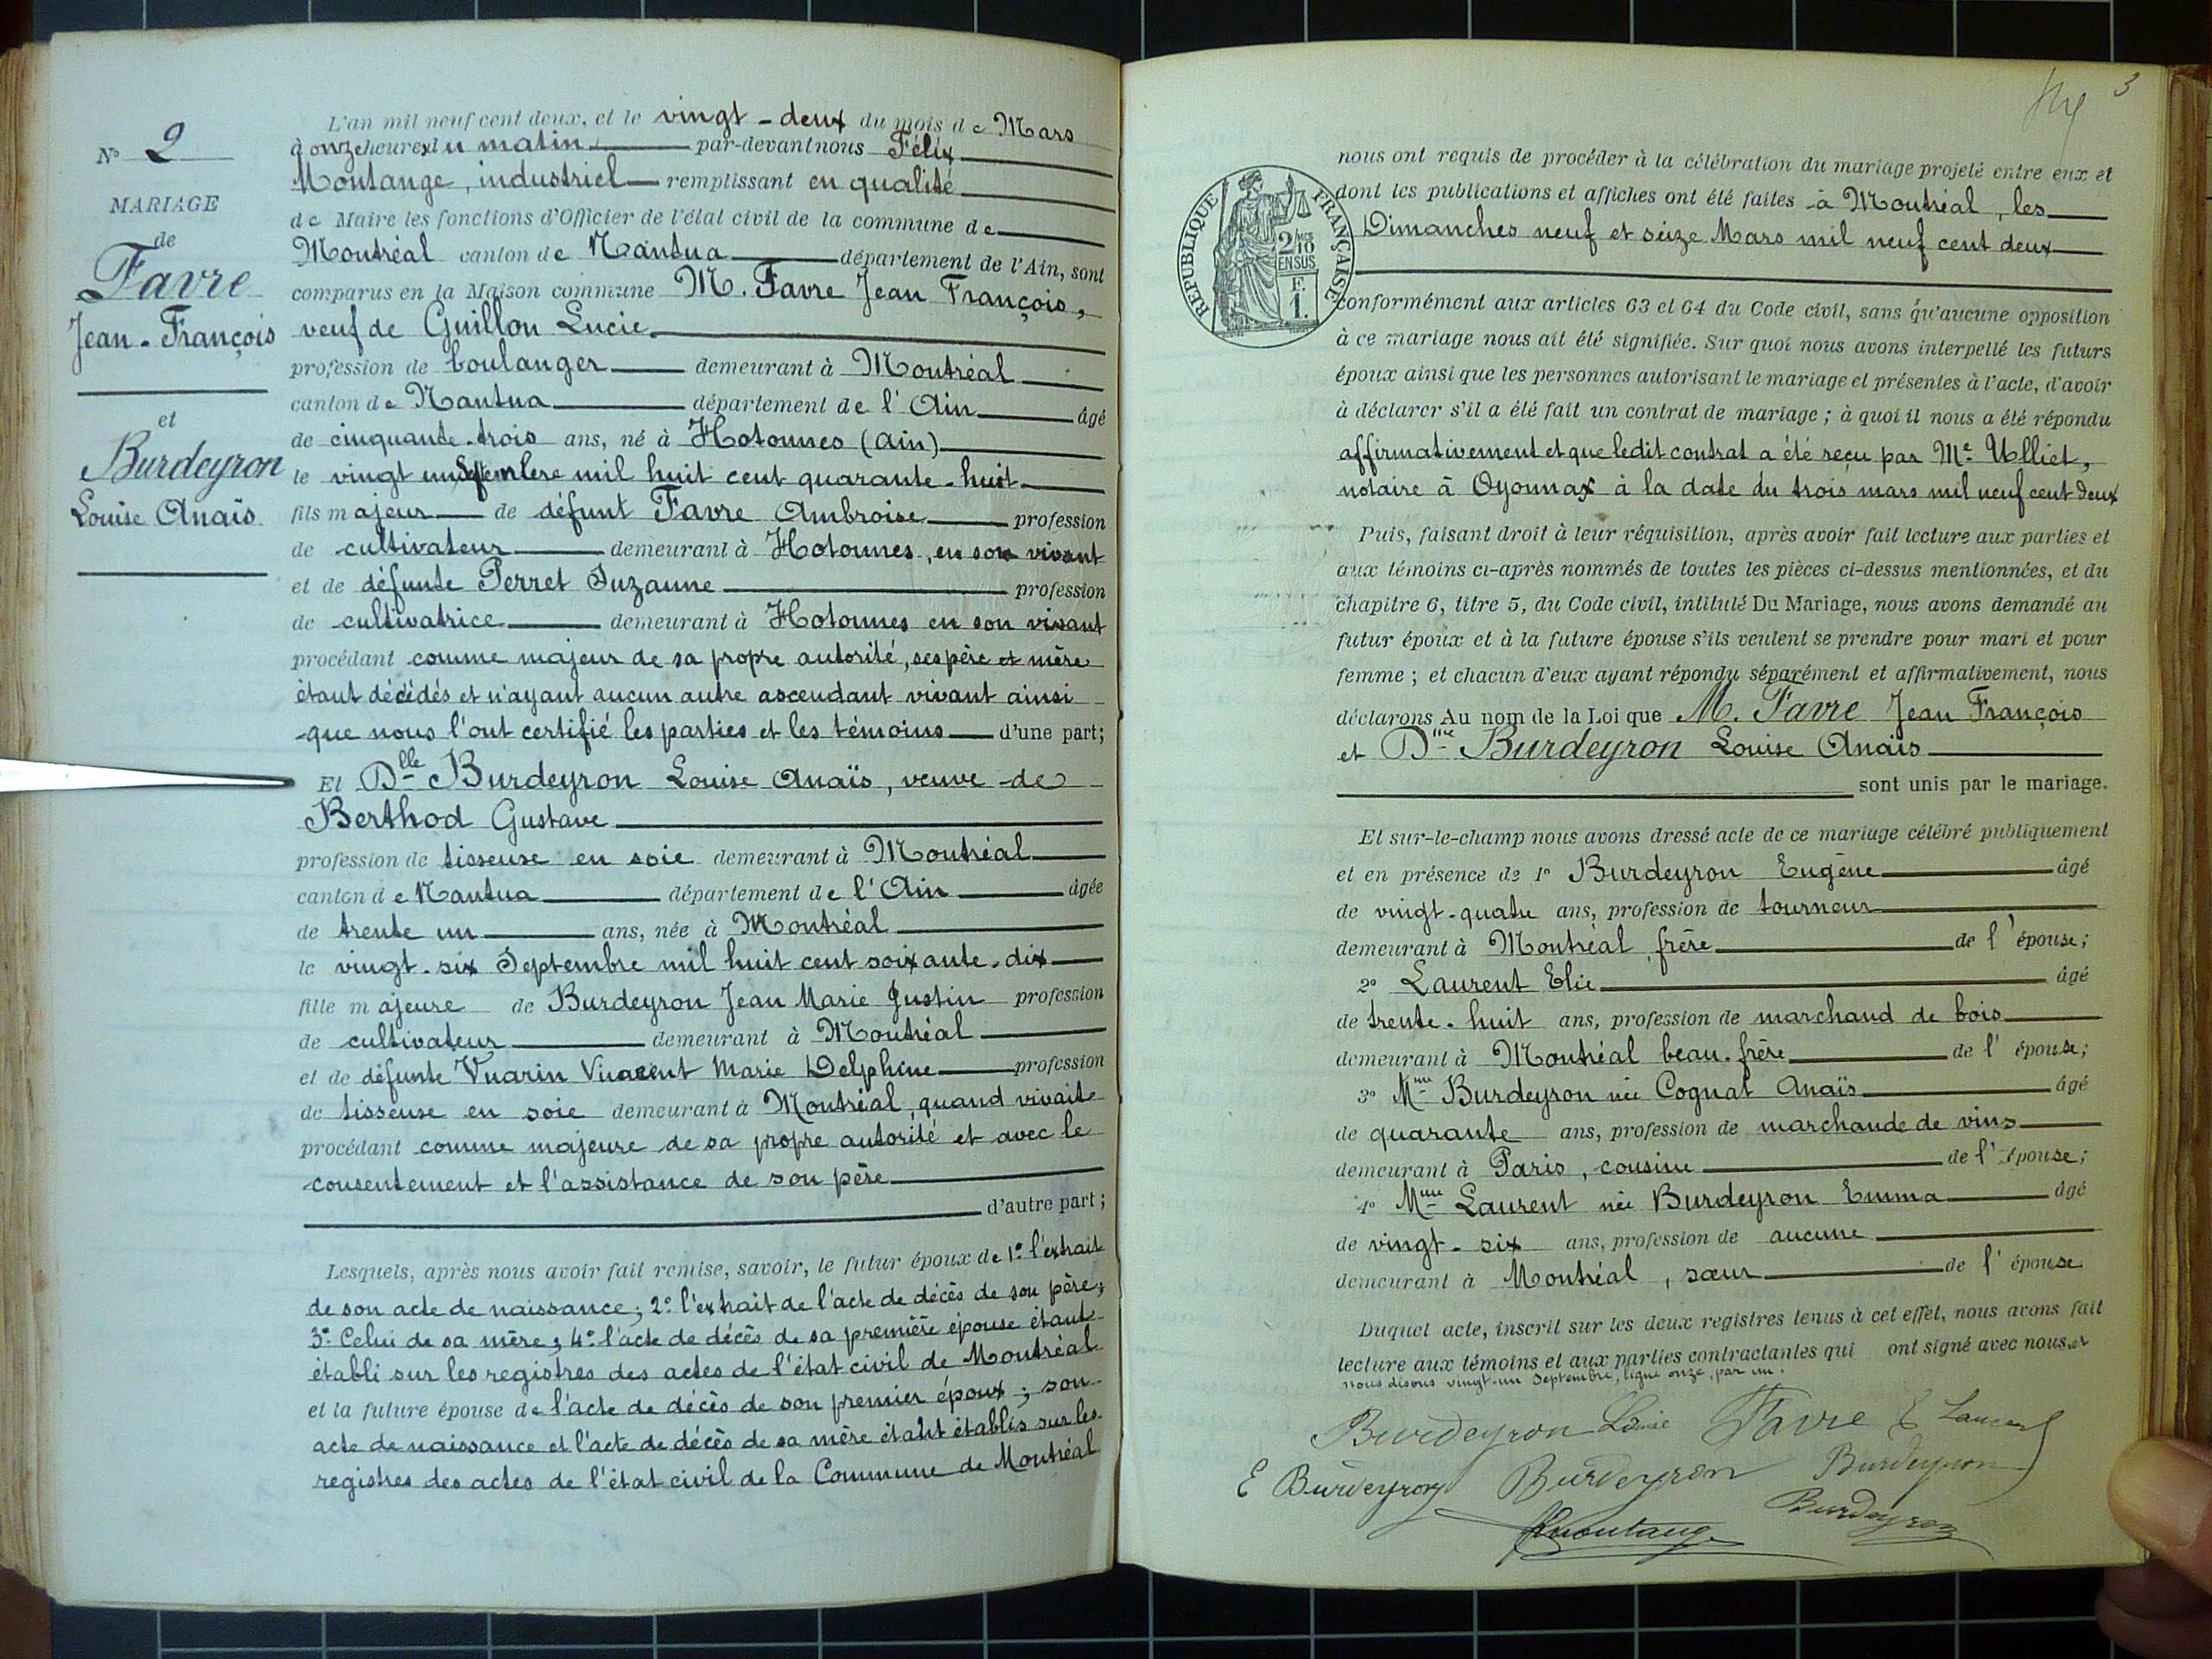 N° 2
MARIAGE
de
Favre
Jean-François
et
Burdeyron
Louise Anaïs
L'an mil neuf cent deux, et le vingt-deux du mois de Mars
à onze heures du matin par-devant nous Félix
Montange, industriel remplissant en qualité
de Maire les fonctions d'Officier de l'état civil de la commune de
Montréal canton de Nantua département de l'Ain, sont
comparus en la Maison commune M. Favre Jean François,
veuf de Guillon Lucie
profession de boulanger demeurant à Montréal
canton de Nantua département de l'Ain âgé
de cinquante-trois ans, né à Hotonnes (Ain)
le vingt un Septembre mil huit cent quarante-huit
fils majeur de défunt Favre Ambroise profession
de cultivateur demeurant à Hotonnes, en son vivant
et de défunte Perret Suzanne profession
de cultivatrice demeurant à Hotonnes en son vivant
procédant comme majeur de sa propre autorité, ses père et mère
étant décédés et n'ayant aucun autre ascendant vivant ainsi
que nous l'ont certifié les parties et les témoins d'une part;
Et Dlle Burdeyron Louise Anaïs, veuve de
Berthod Gustave
profession de tisseuse en soie demeurant à Montréal
canton de Nantua département de l'Ain âgée
de trente un ans, née à Montréal
le vingt-six Septembre mil huit cent soixante-dix
fille majeure de Burdeyron Jean Marie Justin profession
de cultivateur demeurant à Montréal
et de défunte Vuarin Marie Delphine profession
de tisseuse en soie demeurant à Montréal, quand vivait
procédant comme majeure de sa propre autorité et avec le
consentement et l'assistance de son père
d'autre part;
Lesquels, après nous avoir fait remise, savoir, le futur époux de 1° l'extrait
de son acte de naissance; 2° l'extrait de l'acte de décès de son père;
3° Celui de sa mère; 4° l'acte de décès de sa première épouse étant
établi sur les registres des actes de l'état civil de Montréal
et la future épouse de l'acte de décès de son premier époux; son
acte de naissance et l'acte de décès de sa mère étant établis sur les
registres des actes de l'état civil de la Commune de Montréal
3
RÉPUBLIQUE FRANÇAISE
2/10
EN SUS
F.
1.
nous ont requis de procéder à la célébration du mariage projeté entre eux et
dont les publications et affiches ont été faites à Montréal, les
Dimanches neuf et seize Mars mil neuf cent deux
conformément aux articles 63 et 64 du Code civil, sans qu'aucune opposition
à ce mariage nous ait été signifiée. Sur quoi nous avons interpellé les futurs
époux ainsi que les personnes autorisant le mariage et présentes à l'acte, d'avoir
à déclarer s'il a été fait un contrat de mariage; à quoi il nous a été répondu
affirmativement et que ledit contrat a été reçu par Me Ulliet,
notaire à Oyonnax à la date du trois mars mil neuf cent deux
Puis, faisant droit à leur réquisition, après avoir fait lecture aux parties et
aux témoins ci-après nommés de toutes les pièces ci-dessus mentionnées, et du
chapitre 6, titre 5, du Code civil, intitulé Du Mariage, nous avons demandé au
futur époux et à la future épouse s'ils veulent se prendre pour mari et pour
femme; et chacun d'eux ayant répondu séparément et affirmativement, nous
déclarons Au nom de la Loi que M. Favre Jean François
et Dme Burdeyron Louise Anaïs
sont unis par le mariage.
Et sur-le-champ nous avons dressé acte de ce mariage célébré publiquement
et en présence de 1° Burdeyron Eugène âgé
de vingt-quatre ans, profession de tourneur
demeurant à Montréal, frère de l'épouse;
2° Laurent Elie âgé
de trente-huit ans, profession de marchand de bois
demeurant à Montréal beau-frère de l'épouse;
3° Mme Burdeyron née Cognat Anaïs âgé
de quarante ans, profession de marchande de vins
demeurant à Paris, cousine de l'épouse;
4° Mme Laurent née Burdeyron Emma âgé
de vingt-six ans, profession de aucune
demeurant à Montréal, sœur de l'épouse
Duquel acte, inscrit sur les deux registres tenus à cet effet, nous avons fait
lecture aux témoins et aux parties contractantes qui ont signé avec nous, et
nous disons vingt-un Septembre, ligne onze, par un.
Burdeyron Louise Favre E Laurent
E Burdeyron Burdeyron Burdeyron
Burdeyron
Montange